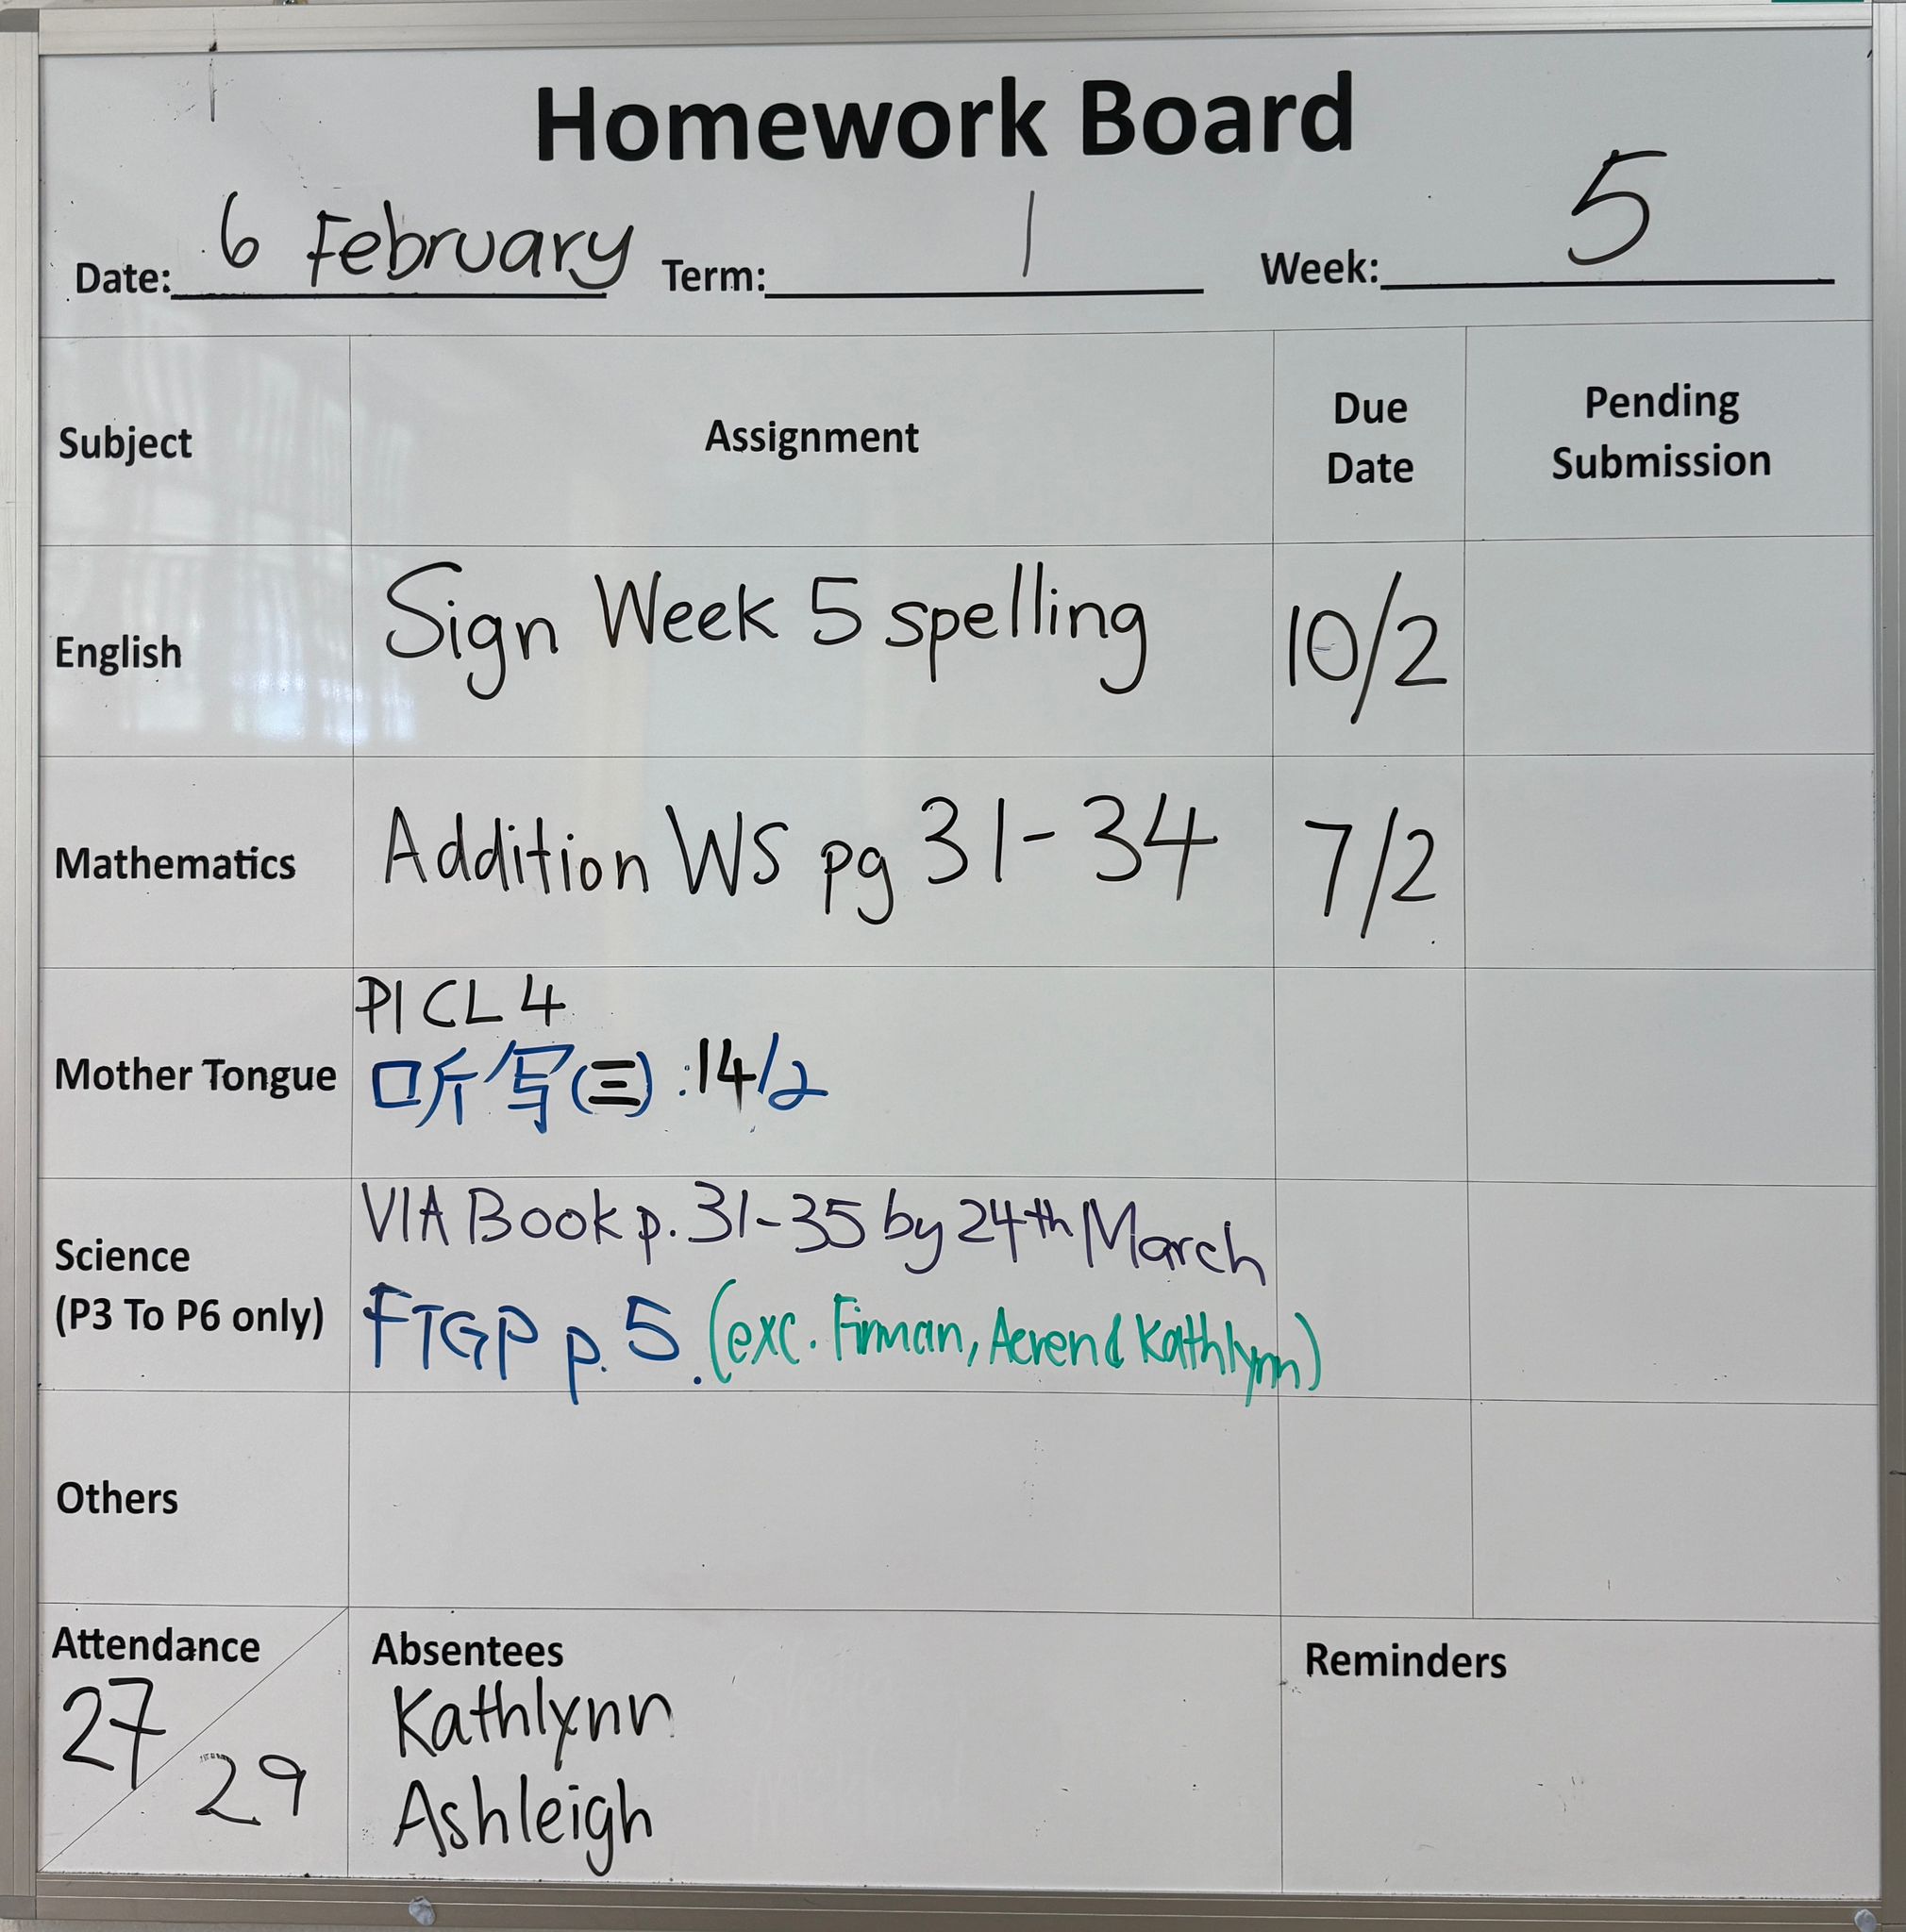 Homework Board
Date: 6 February Term: 1 Week: 5
Subject Assignment Due Date Pending Submission
English Sign Week 5 spelling 10/2
Mathematics Addition WS pg 31-34 7/2
Mother Tongue PI CL 4
听写(三):14/2
Science (P3 To P6 only) VIA Book p. 31-35 by 24th March
FTGP p. 5. (exc. Firman, Aeren & Kathlynn)
Others
Attendance 27/29
Absentees
Kathlynn
Ashleigh
Reminders